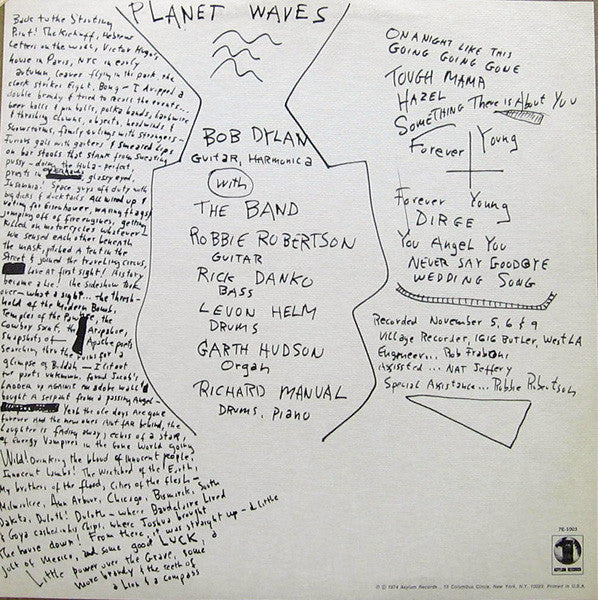 PLANET WAVES
Back to the Starting
Point! The Kickoff, Hebrew
letters on the wall, Victor Hugo's
house in Paris, NYC in early
autumn, leaves flying in the park, the
clock strikes Eight, Bong - I dropped a
double brandy & tried to recall the events...
beer halls & pin balls, polka bands, barbwire
& thrashing clowns, objects, headwinds &
Snowstorms, family outings with strangers -
Furious gals with garters & smeared lips
on bar stools that stank from sweating
pussy - doing the Hula - perfect,
priests in overhauls, glassy eyed,
Insomnia! Space guys off duty with
big dicks & ducktails All wired up &
voting for Eisenhower, waving flags &
jumping off of fire engines, getting
killed on motorcycles whatever -
We sensed each other beneath
the mask, pitched a tent in the
Street & joined the traveling circus,
love at first sight! History
became a lie! the sideshow took
over - what a sight... the thresh-
hold of the Modern Bomb,
Temples of the Pawnee, the
Cowboy saint, the Arapahoe,
snapshots of Apache poets
Searching thru the ruins for a
glimpse of Buddah - I lit out
for parts unknown, found Jacob's
ladder up against an adobe wall &
bought A serpent from a passing Angel -
Yeah the ole days are gone
forever And the new ones Aint far behind, the
laughter is fading away, echos of a star,
of Energy Vampires in the Gone World going
Wild! Drinking the blood of innocent people,
Innocent lambs! The Wretched of the Earth,
My brothers of the flood, cities of the flesh -
Milwaukee, Ann Arbor, Chicago, Bismarck, South
Dakota, Duluth! Duluth - where Baudelaire Lived
& Goya cashed in his Chips, where Joshua brought
The house down! From there, it was straight up - a little
jolt of Mexico, and some good LUCK, a
Little power over the Grave, some
more brandy & the teeth of
a lion & a compass
BOB DYLAN
Guitar, Harmonica
With
THE BAND
ROBBIE ROBERTSON
GUITAR
RICK DANKO
BASS
LEVON HELM
DRUMS
GARTH HUDSON
Organ
RICHARD MANUAL
DRUMS, Piano
ON A NIGHT LIKE THIS
GOING GOING GONE
TOUGH MAMA
HAZEL
SOMETHING There is About You
Forever Young
Forever Young
DIRGE
You Angel You
NEVER SAY GOODBYE
WEDDING SONG
Recorded November 5, 6 & 9
Village Recorder, 1616 Butler, West LA
Engineer... Rob Fraboni
Assisted... NAT Jeffery
Special Assistance... Robbie Robertson
7E-1003
ASYLUM RECORDS
℗ © 1974 Asylum Records, 15 Columbus Circle, New York, N.Y. 10023. Printed in U.S.A.